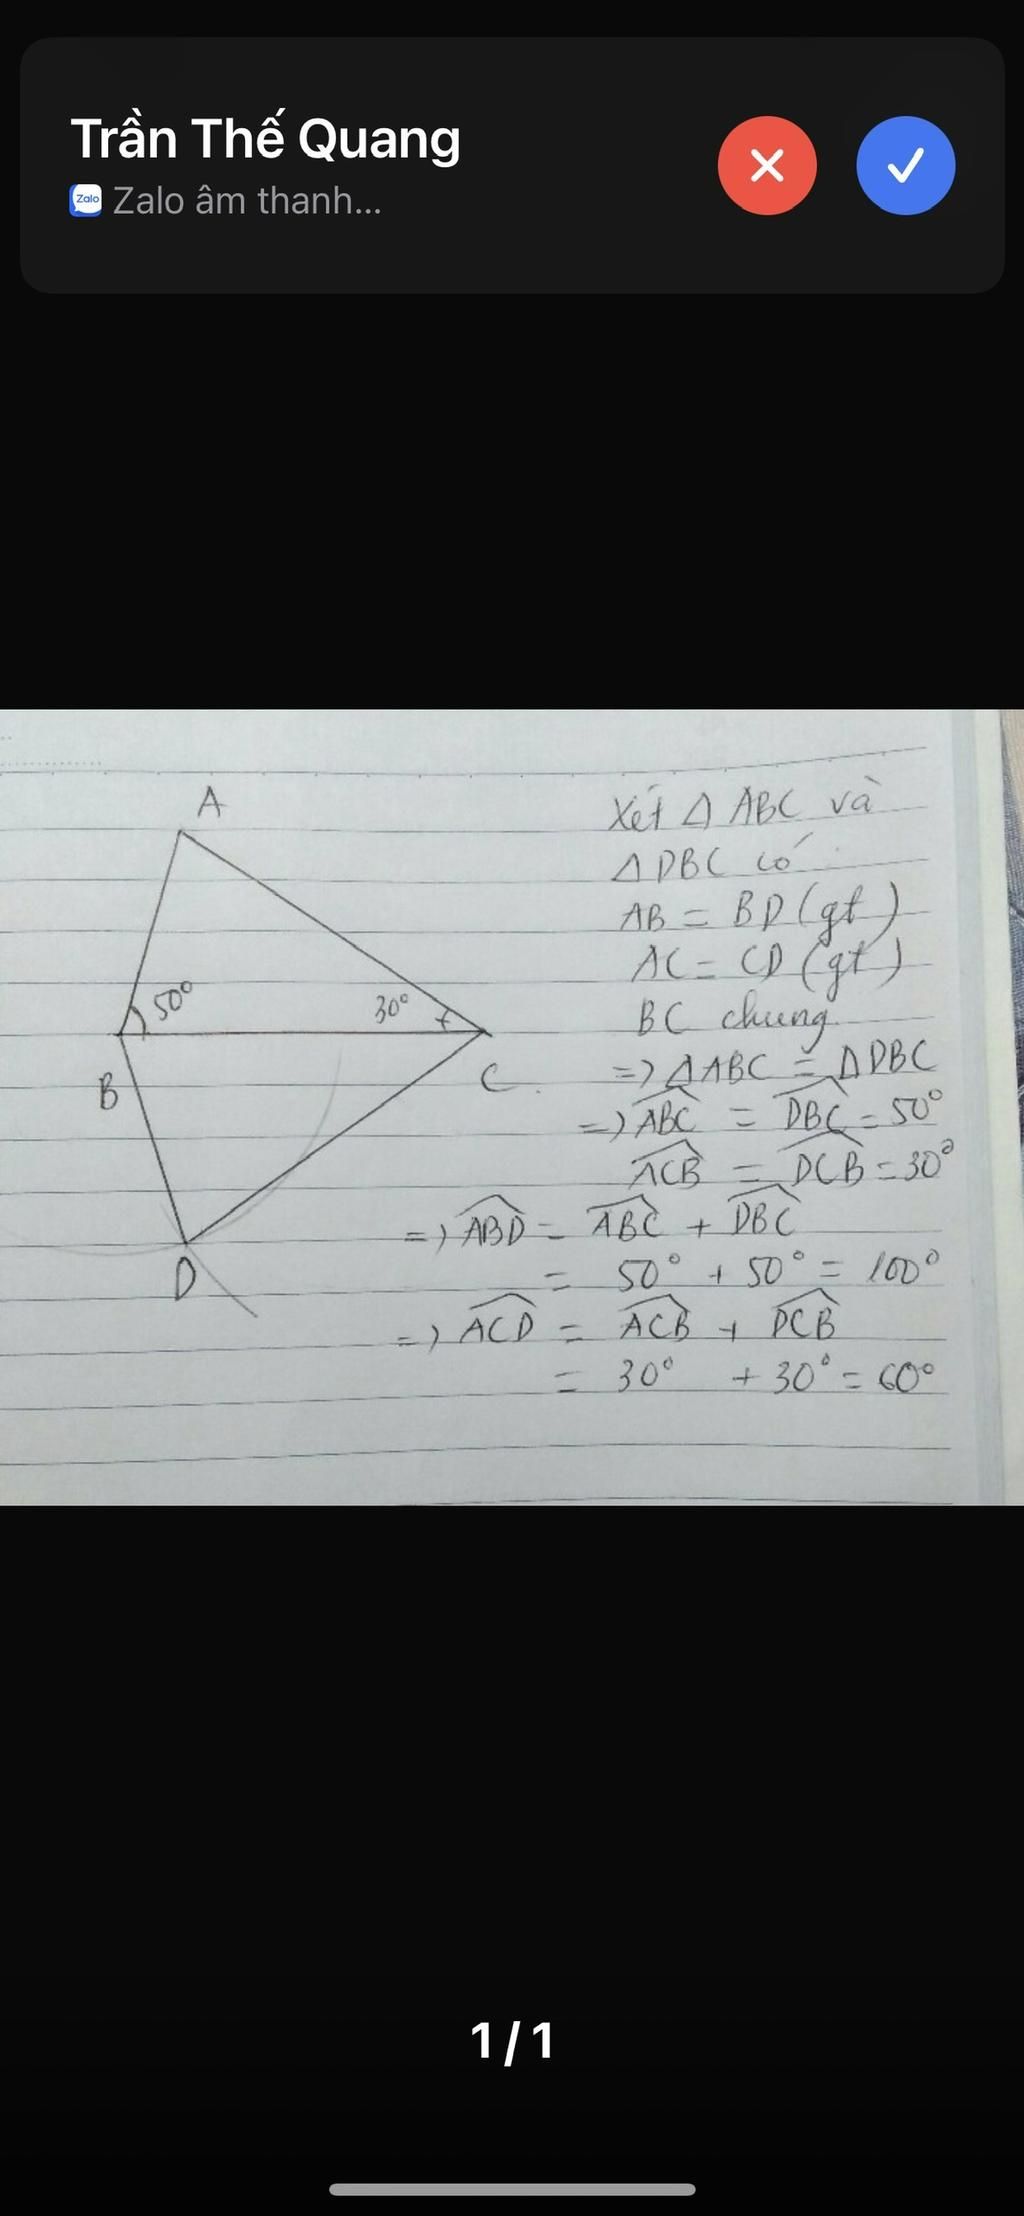 Trần Thế Quang
Zalo
Zalo âm thanh...
A
50°
30°
B
C
D
Xét Δ ABC và
Δ DBC có
AB = BD (gt)
AC = CD (gt)
BC chung
=> ΔABC = ΔDBC
=> \widehat{ABC} = \widehat{DBC} = 50°
\widehat{ACB} = \widehat{DCB} = 30°
=> \widehat{ABD} = \widehat{ABC} + \widehat{DBC}
= 50° + 50° = 100°
=> \widehat{ACD} = \widehat{ACB} + \widehat{DCB}
= 30° + 30° = 60°
1/1